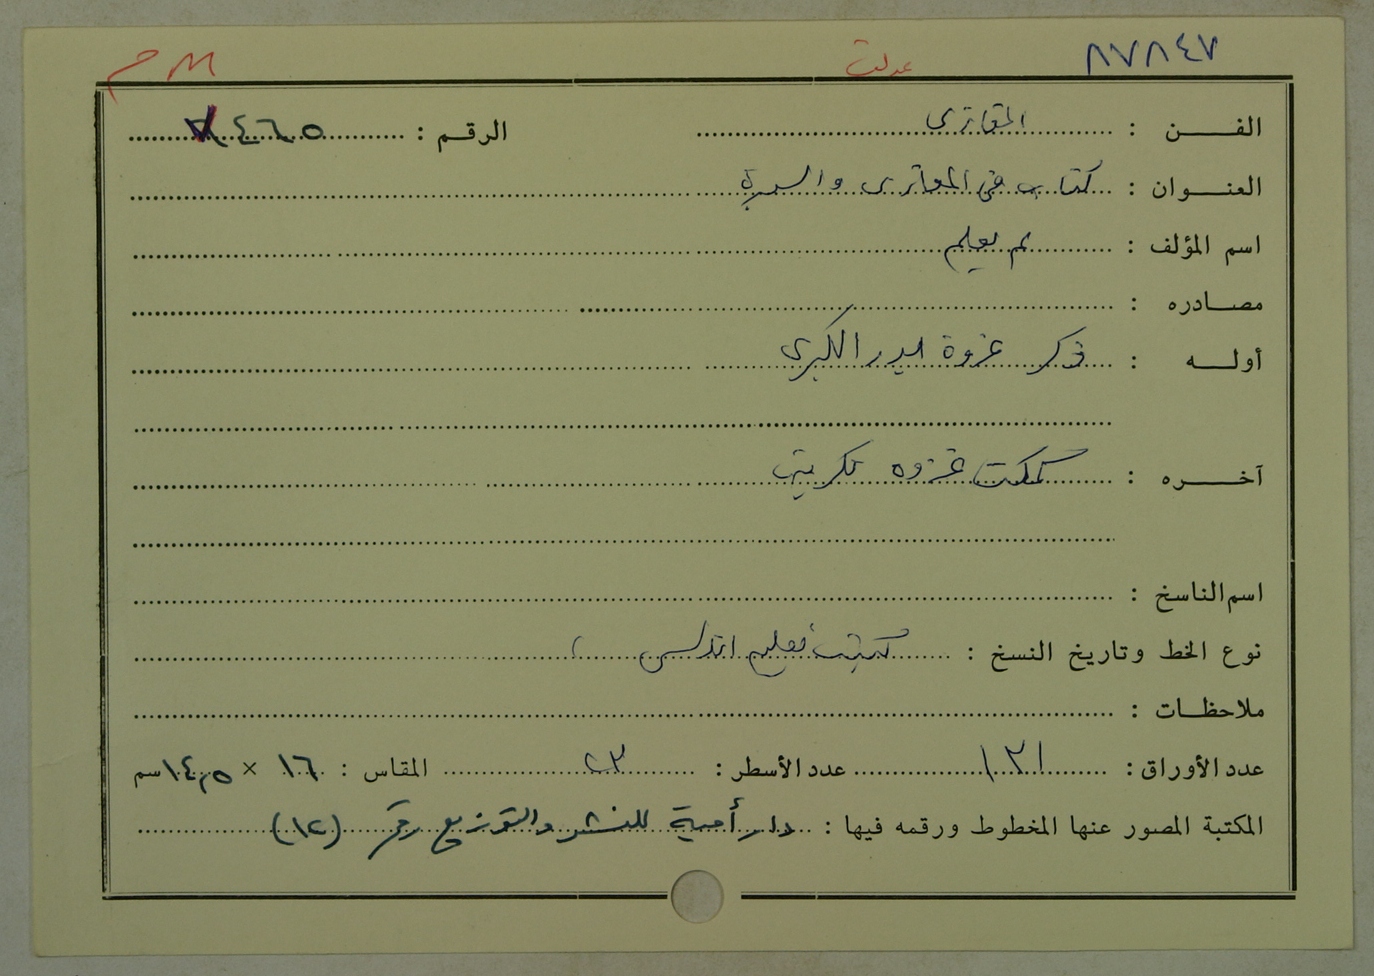 ٨٧٨٤٧
عدلت
الفن : المغازى
الرقم : ٤٦٥
العنوان : كتاب فى المغازى والسيرة
اسم المؤلف : لم يعلم
مصادره :
أوله : ذكر غزوة بدر الكبرى
آخره : كملت غزوه
اسم الناسخ :
نوع الخط وتاريخ النسخ : كتبت بقلم اندلسى
ملاحظات :
عدد الأوراق : ١٣١ عدد الأسطر : ٢٣ المقاس : ١٦ × ١٤,٥ سم
المكتبة المصور عنها المخطوط ورقمه فيها : دار أمية للنشر والتوزيع رقم (١٢)